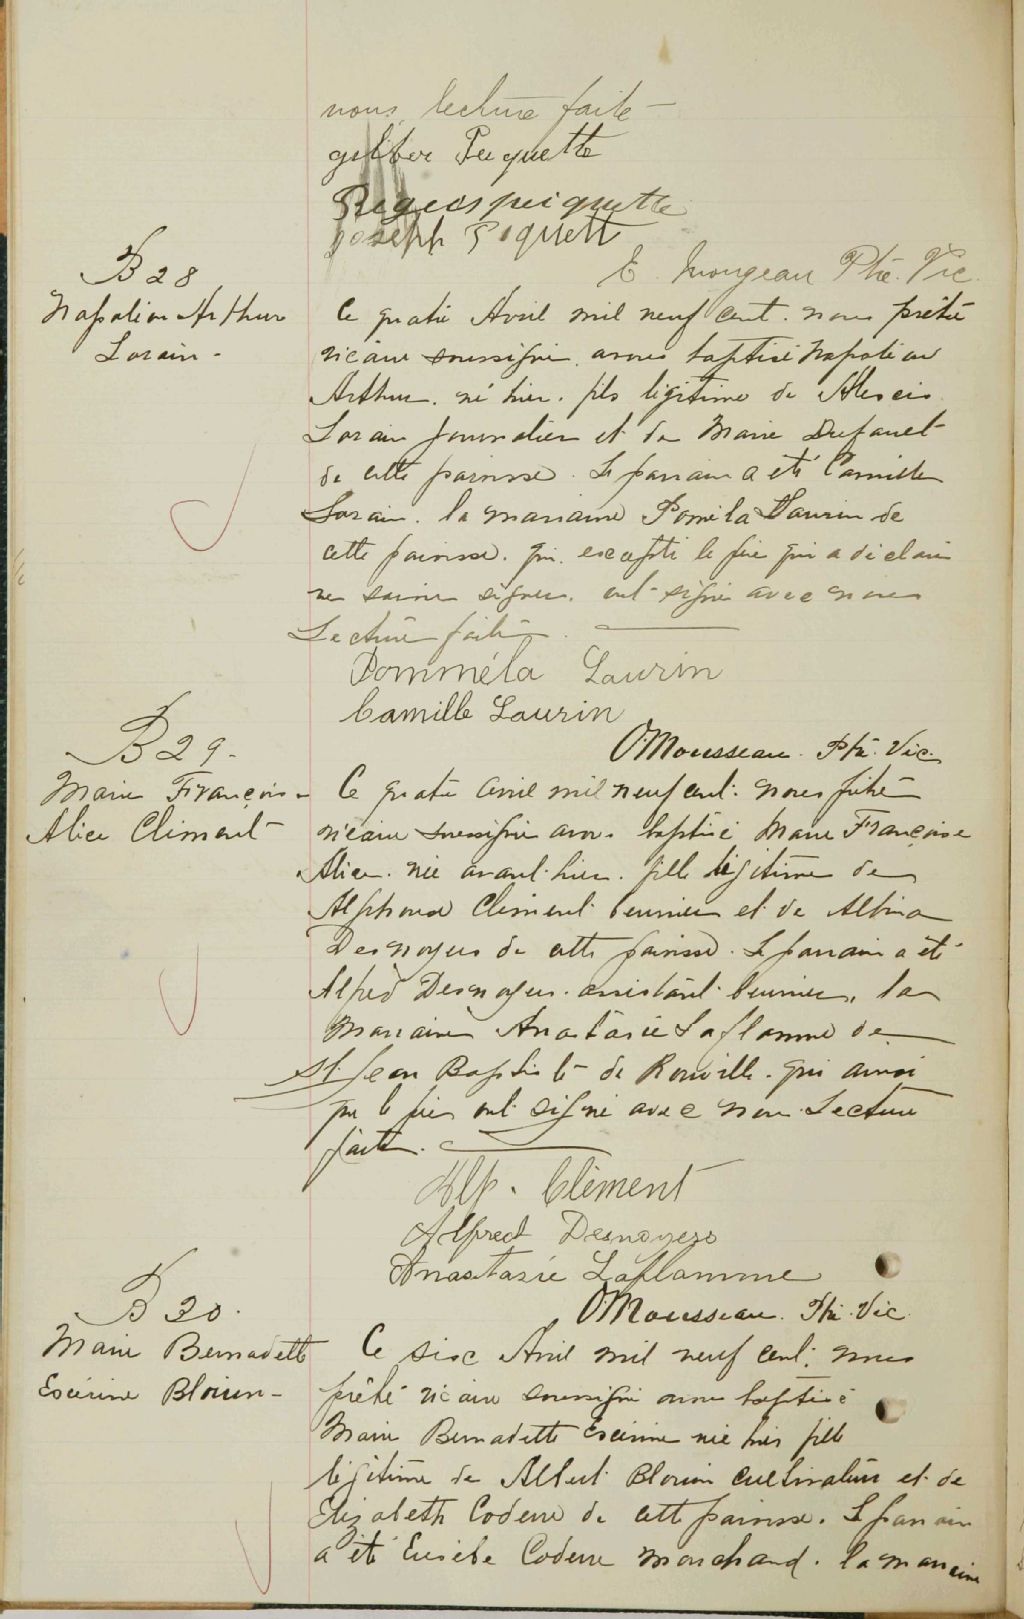 nous, lecture faite -
Piquette
piquette
Joseph Piquett
E. Mongeau Ptre. Vic.
B 28
Napoléon Arthur
Lorain -
Ce quatre Avril mil neuf cent. nous prêtre
vicaire soussigné avons baptisé Napoléon
Arthur. né hier. fils légitime de Alexis
Lorain journalier et de Marie Dufault
de cette paroisse. Le parrain a été Camille
Lorain. la marraine Poméla Laurin de
cette paroisse. qui. excepté le père qui a déclaré
ne savoir signer. ont signé avec nous
Lecture faite.
Pomméla Laurin
Camille Laurin
O. Mousseau. Ptr. Vic.
B 29 -
Marie Françoise
Alice Climent
Ce quatre avril mil neuf cent. nous prêtre
vicaire soussigné avons baptisé Marie Françoise
Alice. née avant-hier. fille légitime de
Alphonse Climent beurrier et de Albina
Desnoyers de cette paroisse. Le parrain a été
Alfred Desnoyers. assistant beurrier, la
marraine Anastasie Laflamme de
St. Jean Baptiste de Rouville. qui ainsi
que le père ont signé avec nous. Lecture
faite.
Alp. Clément
Alfred Desnoyers
Anastasie Laflamme
O. Mousseau. Ptr. Vic.
B 30.
Marie Bernadette
Exérine Blouin -
Ce six Avril mil neuf cent. nous
prêtre vicaire soussigné avons baptisé
Marie Bernadette Exérine née hier fille
légitime de Albert Blouin cultivateur et de
Elizabeth Coderre de cette paroisse. Le parrain
a été Eusèbe Coderre marchand. la marraine